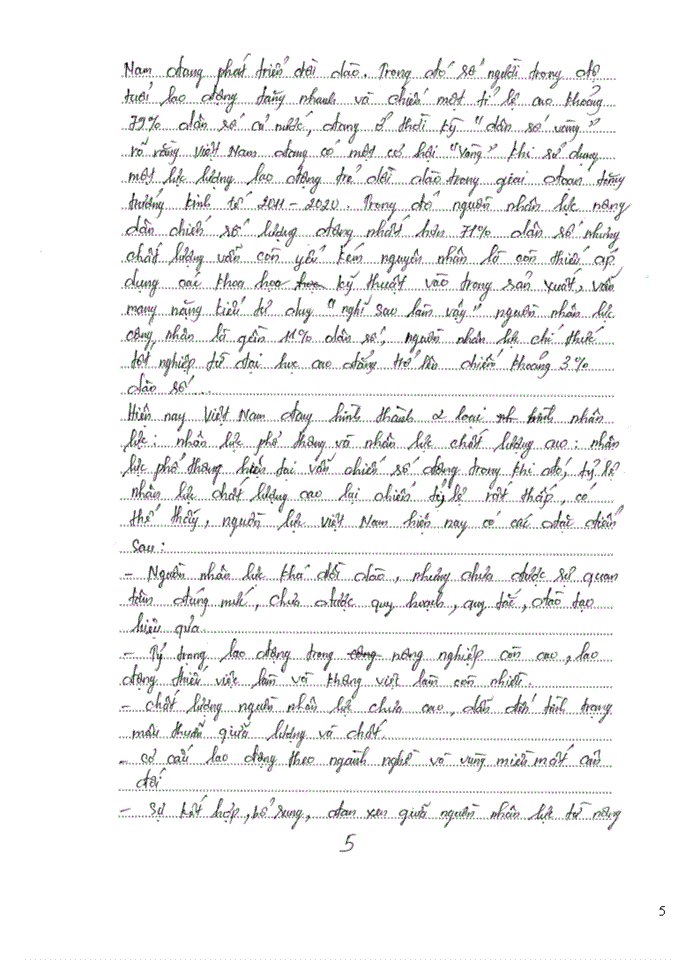 Nam đang phát triển dồi dào. Trong đó số người trong độ
tuổi lao động tăng nhanh và chiếm một tỉ lệ cao khoảng
79% dân số cả nước, đang ở thời kỳ "dân số vàng"
rõ ràng Việt Nam đang có một cơ hội "vàng" khi sử dụng
một lực lượng lao động trẻ dồi dào trong giai đoạn tăng
trưởng kinh tế 2011-2020. Trong đó nguồn nhân lực nông
dân chiếm số lượng đông nhất hơn 71% dân số nhưng
chất lượng vẫn còn yếu kém nguyên nhân là còn thiếu áp
dụng các khoa học kỹ thuật vào trong sản xuất, vẫn
mang nặng kiểu tư duy "nghĩ sao làm vậy" nguồn nhân lực
công nhân là gần 11% dân số, nguồn nhân lực chi thức
tốt nghiệp từ đại học cao đẳng trở lên chiếm khoảng 3%
dân số...
Hiện nay Việt Nam đang hình thành 2 loại hình nhân
lực: nhân lực phổ thông và nhân lực chất lượng cao: nhân
lực phổ thông hiện tại vẫn chiếm số đông trong khi đó, tỷ lệ
nhân lực chất lượng cao lại chiếm tỷ lệ rất thấp, có
thể thấy, nguồn lực Việt Nam hiện nay có các đặc điểm
sau:
- Nguồn nhân lực khá dồi dào, nhưng chưa được sự quan
tâm đúng mức, chưa được quy hoạch, quy tắc, đào tạo
hiệu quả.
- Tỷ trọng lao động trong nông nghiệp còn cao, lao
động thiếu việc làm và không việc làm còn nhiều.
- chất lượng nguồn nhân lực chưa cao, dẫn đến tình trạng
mâu thuẫn giữa lượng và chất.
- cơ cấu lao động theo ngành nghề và vùng miền mất cân
đối
- Sự kết hợp, bổ sung, đan xen giữa nguồn nhân lực từ nông
5
5